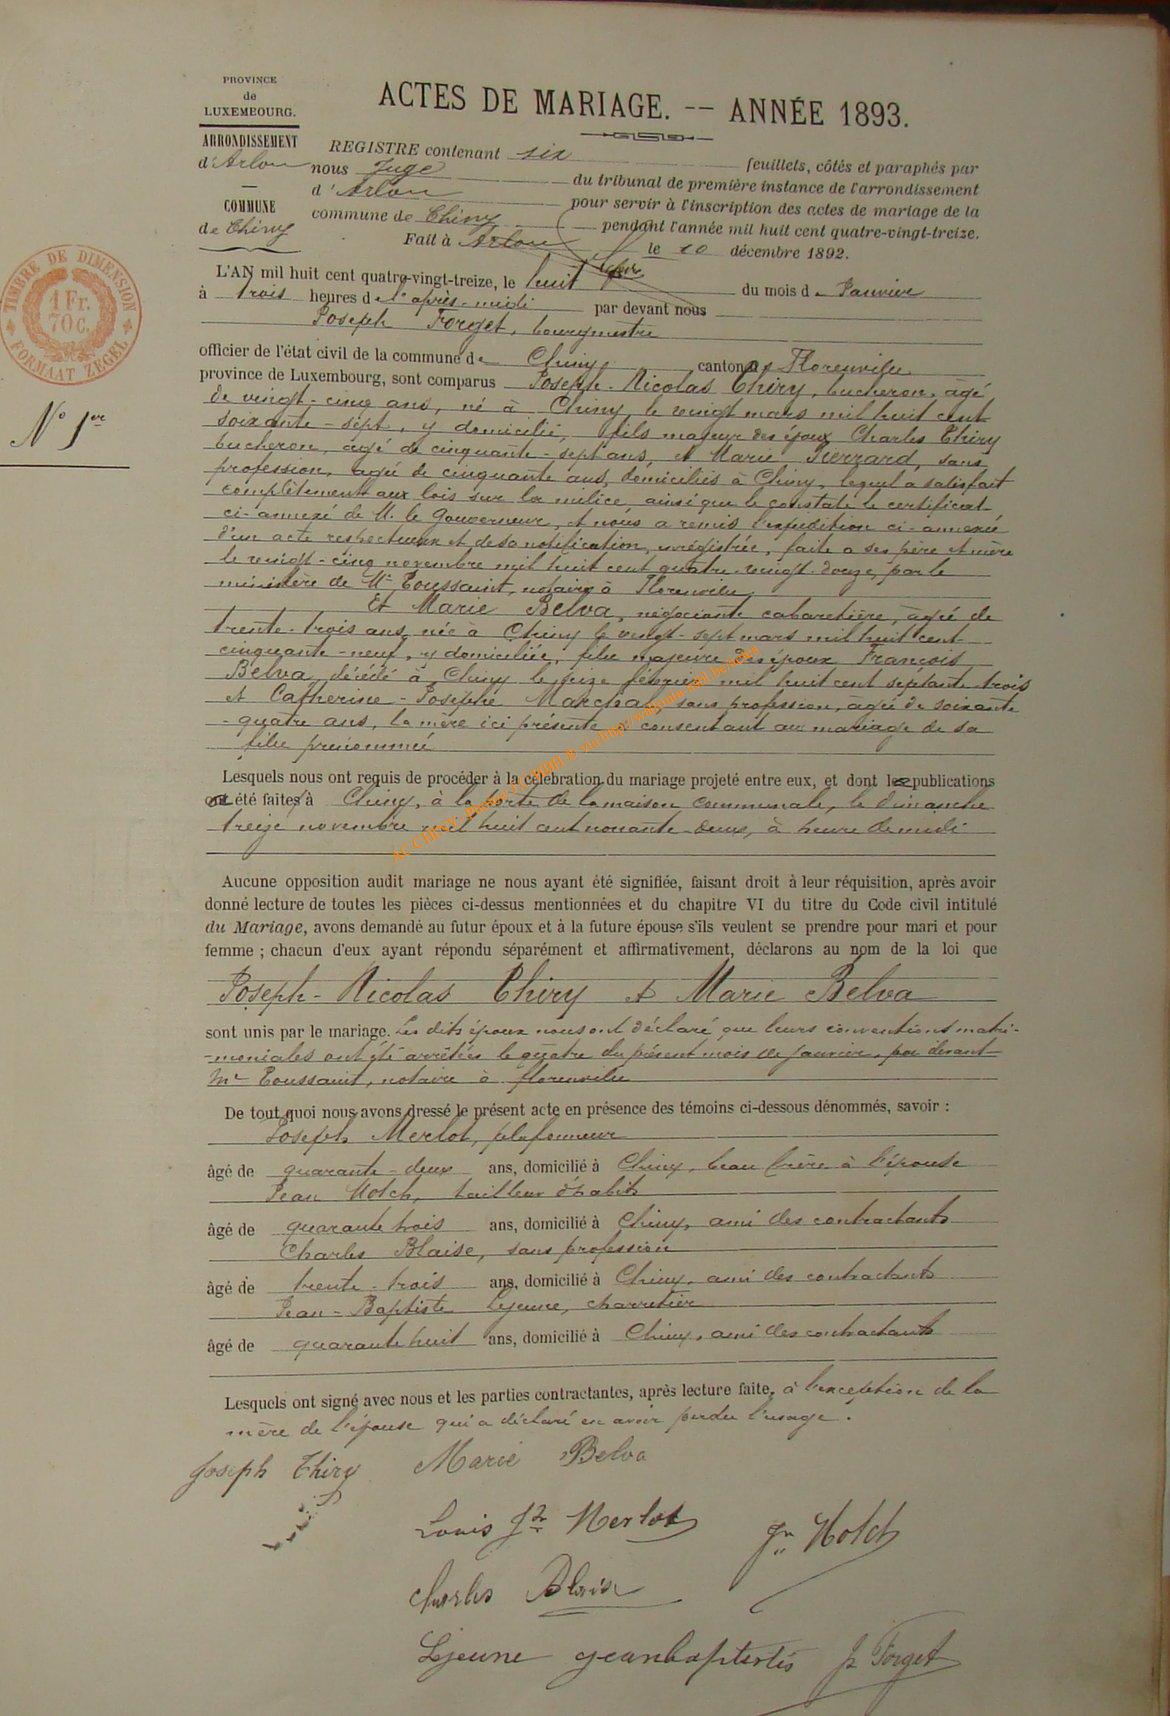 PROVINCE
de
LUXEMBOURG.
ARRONDISSEMENT
d'Arlon
COMMUNE
de Chiny
TIMBRE DE DIMENSION
1 Fr.
70 C.
FORMAAT ZEGEL
N° 1er
ACTES DE MARIAGE. -- ANNÉE 1893.
REGISTRE contenant six feuillets, côtés et paraphés par
nous Juge du tribunal de première instance de l'arrondissement
d'Arlon pour servir à l'inscription des actes de mariage de la
commune de Chiny pendant l'année mil huit cent quatre-vingt-treize.
Fait à Arlon le 10 décembre 1892.
L'AN mil huit cent quatre-vingt-treize, le huit du mois de Janvier
à trois heures de l'après-midi par devant nous
Joseph Forget, bourgmestre
officier de l'état civil de la commune de Chiny canton de Florenville
province de Luxembourg, sont comparus Joseph-Nicolas Thiry, bucheron, âgé
de vingt-cinq ans, né à Chiny, le vingt mars mil huit cent
soixante-sept, y domicilié, fils majeur des époux Charles Thiry
bucheron, âgé de cinquante-sept ans, et Marie Pierrard, sans
profession, agée de cinquante ans, domiciliés à Chiny, lequel a satisfait
complètement aux lois sur la milice, ainsi que le constate le certificat
ci-annexé de M. le Gouverneur, et nous a remis l'expédition ci-annexée
d'un acte respectueux et de sa notification, enrégistrée, faite a ses père et mère
le vingt-cinq novembre mil huit cent quatre-vingt-douze, par le
ministère de Me Toussaint, notaire à Florenville
Et Marie Belva, négociante cabaretière, âgée de
trente-trois ans, née à Chiny le vingt-sept mars mil huit cent
cinquante-neuf, y domiciliée, fille majeure des époux François
Belva, décédé à Chiny le seize février mil huit cent septante-trois
et Catherine-Josephe Marchal, sans profession, agée de soixante
-quatre ans, la mère ici présente et consentant au mariage de sa
fille prénommée
Lesquels nous ont requis de procéder à la célébration du mariage projeté entre eux, et dont les publications
ont été faites à Chiny, à la porte de la maison communale, le dimanche
treize novembre mil huit cent nonante-deux, à heure de midi
Aucune opposition audit mariage ne nous ayant été signifiée, faisant droit à leur réquisition, après avoir
donné lecture de toutes les pièces ci-dessus mentionnées et du chapitre VI du titre du Code civil intitulé
du Mariage, avons demandé au futur époux et à la future épouse s'ils veulent se prendre pour mari et pour
femme ; chacun d'eux ayant répondu séparément et affirmativement, déclarons au nom de la loi que
Joseph-Nicolas Thiry et Marie Belva
sont unis par le mariage. Les dits époux nous ont déclaré que leurs conventions matri-
-moniales ont été arrêtées le quatre du présent mois de janvier, par devant
Me Toussaint, notaire à florenville
De tout quoi nous avons dressé le présent acte en présence des témoins ci-dessous dénommés, savoir :
Joseph Merlot, plafonneur
âgé de quarante-deux ans, domicilié à Chiny, beau frère à l'épouse
Jean Holch, tailleur d'habits
âgé de quarante trois ans, domicilié à Chiny, ami des contractants
Charles Blaise, sans profession
âgé de trente-trois ans, domicilié à Chiny, ami des contractants
Jean-Baptiste Lejeune, charretier
âgé de quarante huit ans, domicilié à Chiny, ami des contractants
Lesquels ont signé avec nous et les parties contractantes, après lecture faite, à l'exception de la
mère de l'épouse qui a déclaré en avoir perdu l'usage.
Joseph Thiry Marie Belva
Louis Merlot Jn Holch
Charles Blaise
Lejeune jeanbaptistis J. Forget